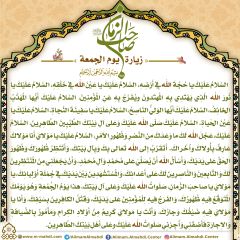 صاحب الزمان
زيارة يوم الجمعة
بسم الله الرحمن الرحيم
السَّلامُ عَلَيْكَ يا حُجَّةَ اللهِ في أرْضِهِ، السَّلامُ عَلَيْكَ يا عَيْنَ اللهِ في خَلْقِهِ، السَّلامُ عَلَيْكَ يا
نُورَ اللهِ الَّذي يَهْتَدي بِهِ الْمُهْتَدُونَ وَيُفَرَّجُ بِهِ عَنِ الْمُؤْمِنينَ، السَّلامُ عَلَيْكَ أيُّهَا الْمُهَذَّبُ
الْخائِفُ، السَّلامُ عَلَيْكَ أيُّهَا الْوَلِيُّ النّاصِحُ، السَّلامُ عَلَيْكَ يا سَفينَةَ النَّجاةِ، السَّلامُ عَلَيْكَ يا
عَيْنَ الْحَياةِ، السَّلامُ عَلَيْكَ صَلَّى اللهُ عَلَيْكَ وَعَلى آلِ بَيْتِكَ الطَّيِّبينَ الطّاهِرينَ، السَّلامُ
عَلَيْكَ عَجَّلَ اللهُ لَكَ ما وَعَدَكَ مِنَ النَّصْرِ وَظُهُورِ الأمْرِ، السَّلامُ عَلَيْكَ يا مَوْلايَ، أنَا مَوْلاكَ
عارِفٌ بِأُولاكَ وَأُخْراكَ، أتَقَرَّبُ إلَى اللهِ تَعالى بِكَ وَبِآلِ بَيْتِكَ، وَأنْتَظِرُ ظُهُورَكَ وَظُهُورَ
الْحَقِّ عَلى يَدَيْكَ، وَأسْألُ اللهَ أنْ يُصَلِّيَ عَلى مُحَمَّدٍ وَآلِ مُحَمَّدٍ، وَأنْ يَجْعَلَني مِنَ الْمُنْتَظِرينَ
لَكَ وَالتّابِعينَ وَالنّاصِرينَ لَكَ عَلى أعْدائِكَ، وَالْمُسْتَشْهَدينَ بَيْنَ يَدَيْكَ في جُمْلَةِ أوْلِيائِكَ، يا
مَوْلايَ يا صاحِبَ الزَّمانِ، صَلَواتُ اللهِ عَلَيْكَ وَعَلى آلِ بَيْتِكَ، هذا يَوْمُ الْجُمُعَةِ وَهُوَ يَوْمُكَ
الْمُتَوَقَّعُ فيهِ ظُهُورُكَ، وَالْفَرَجُ فيهِ لِلْمُؤْمِنينَ عَلى يَدَيْكَ، وَقَتْلُ الْكافِرينَ بِسَيْفِكَ، وَأنَا يا
مَوْلايَ فيهِ ضَيْفُكَ وَجارُكَ، وَأنْتَ يا مَوْلايَ كَريمٌ مِنْ أوْلادِ الْكِرامِ وَمَأْمُورٌ بِالضِّيافَةِ
وَالإجارَةِ فَأضِفْني وَأجِرْني صَلَواتُ اللهِ عَلَيْكَ وَعَلى أهْلِ بَيْتِكَ الطّاهِرينَ.
Almarsheh.Center